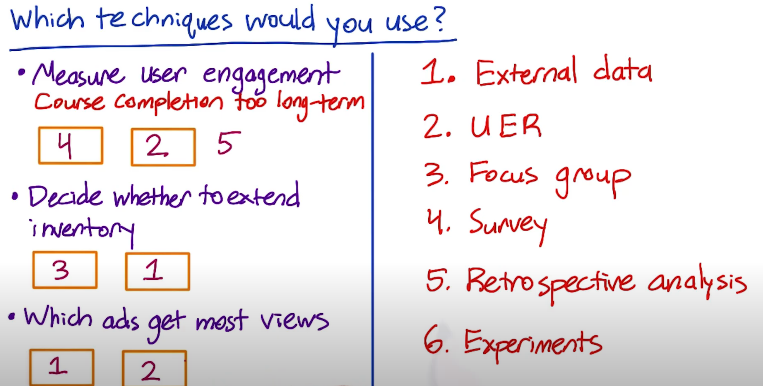 Which techniques would you use?
• Measure user engagement
Course Completion too long-term
4 2 5
• Decide whether to extend
inventory
3 1
• Which ads get most views
1 2
1. External data
2. UER
3. Focus group
4. Survey
5. Retrospective analysis
6. Experiments